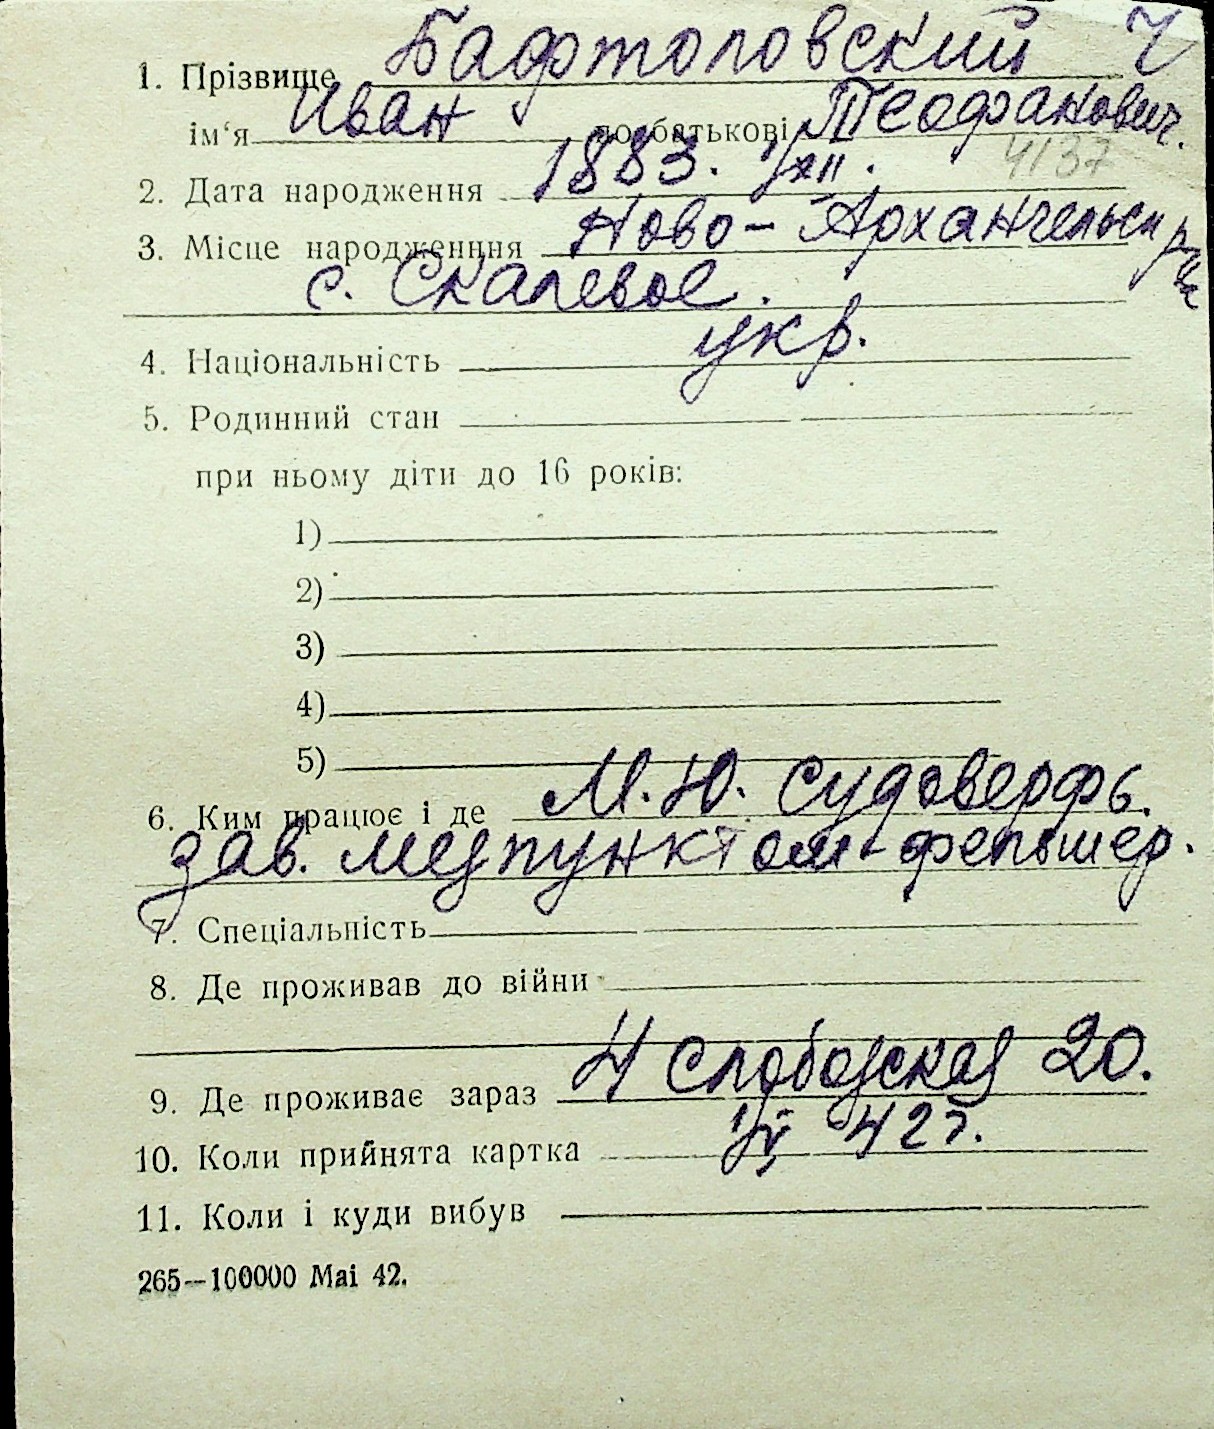 1. Прізвище Бафтоловский Ч
ім‘я Иван по батькові Теофанович.
4137
2. Дата народження 1883. 1/XII.
3. Місце народженння Ново-Архангельск р-н
с. Скалевое.
4. Національність укр.
5. Родинний стан
при ньому діти до 16 років:
1)
2)
3)
4)
5)
6. Ким працює і де М.Ю. Судоверфь.
зав. медпунктом-фельшер.
7. Спеціальність
8. Де проживав до війни
9. Де проживає зараз 4 Слободская 20.
10. Коли прийнята картка 42г.
11. Коли і куди вибув
265—100000 Mai 42.